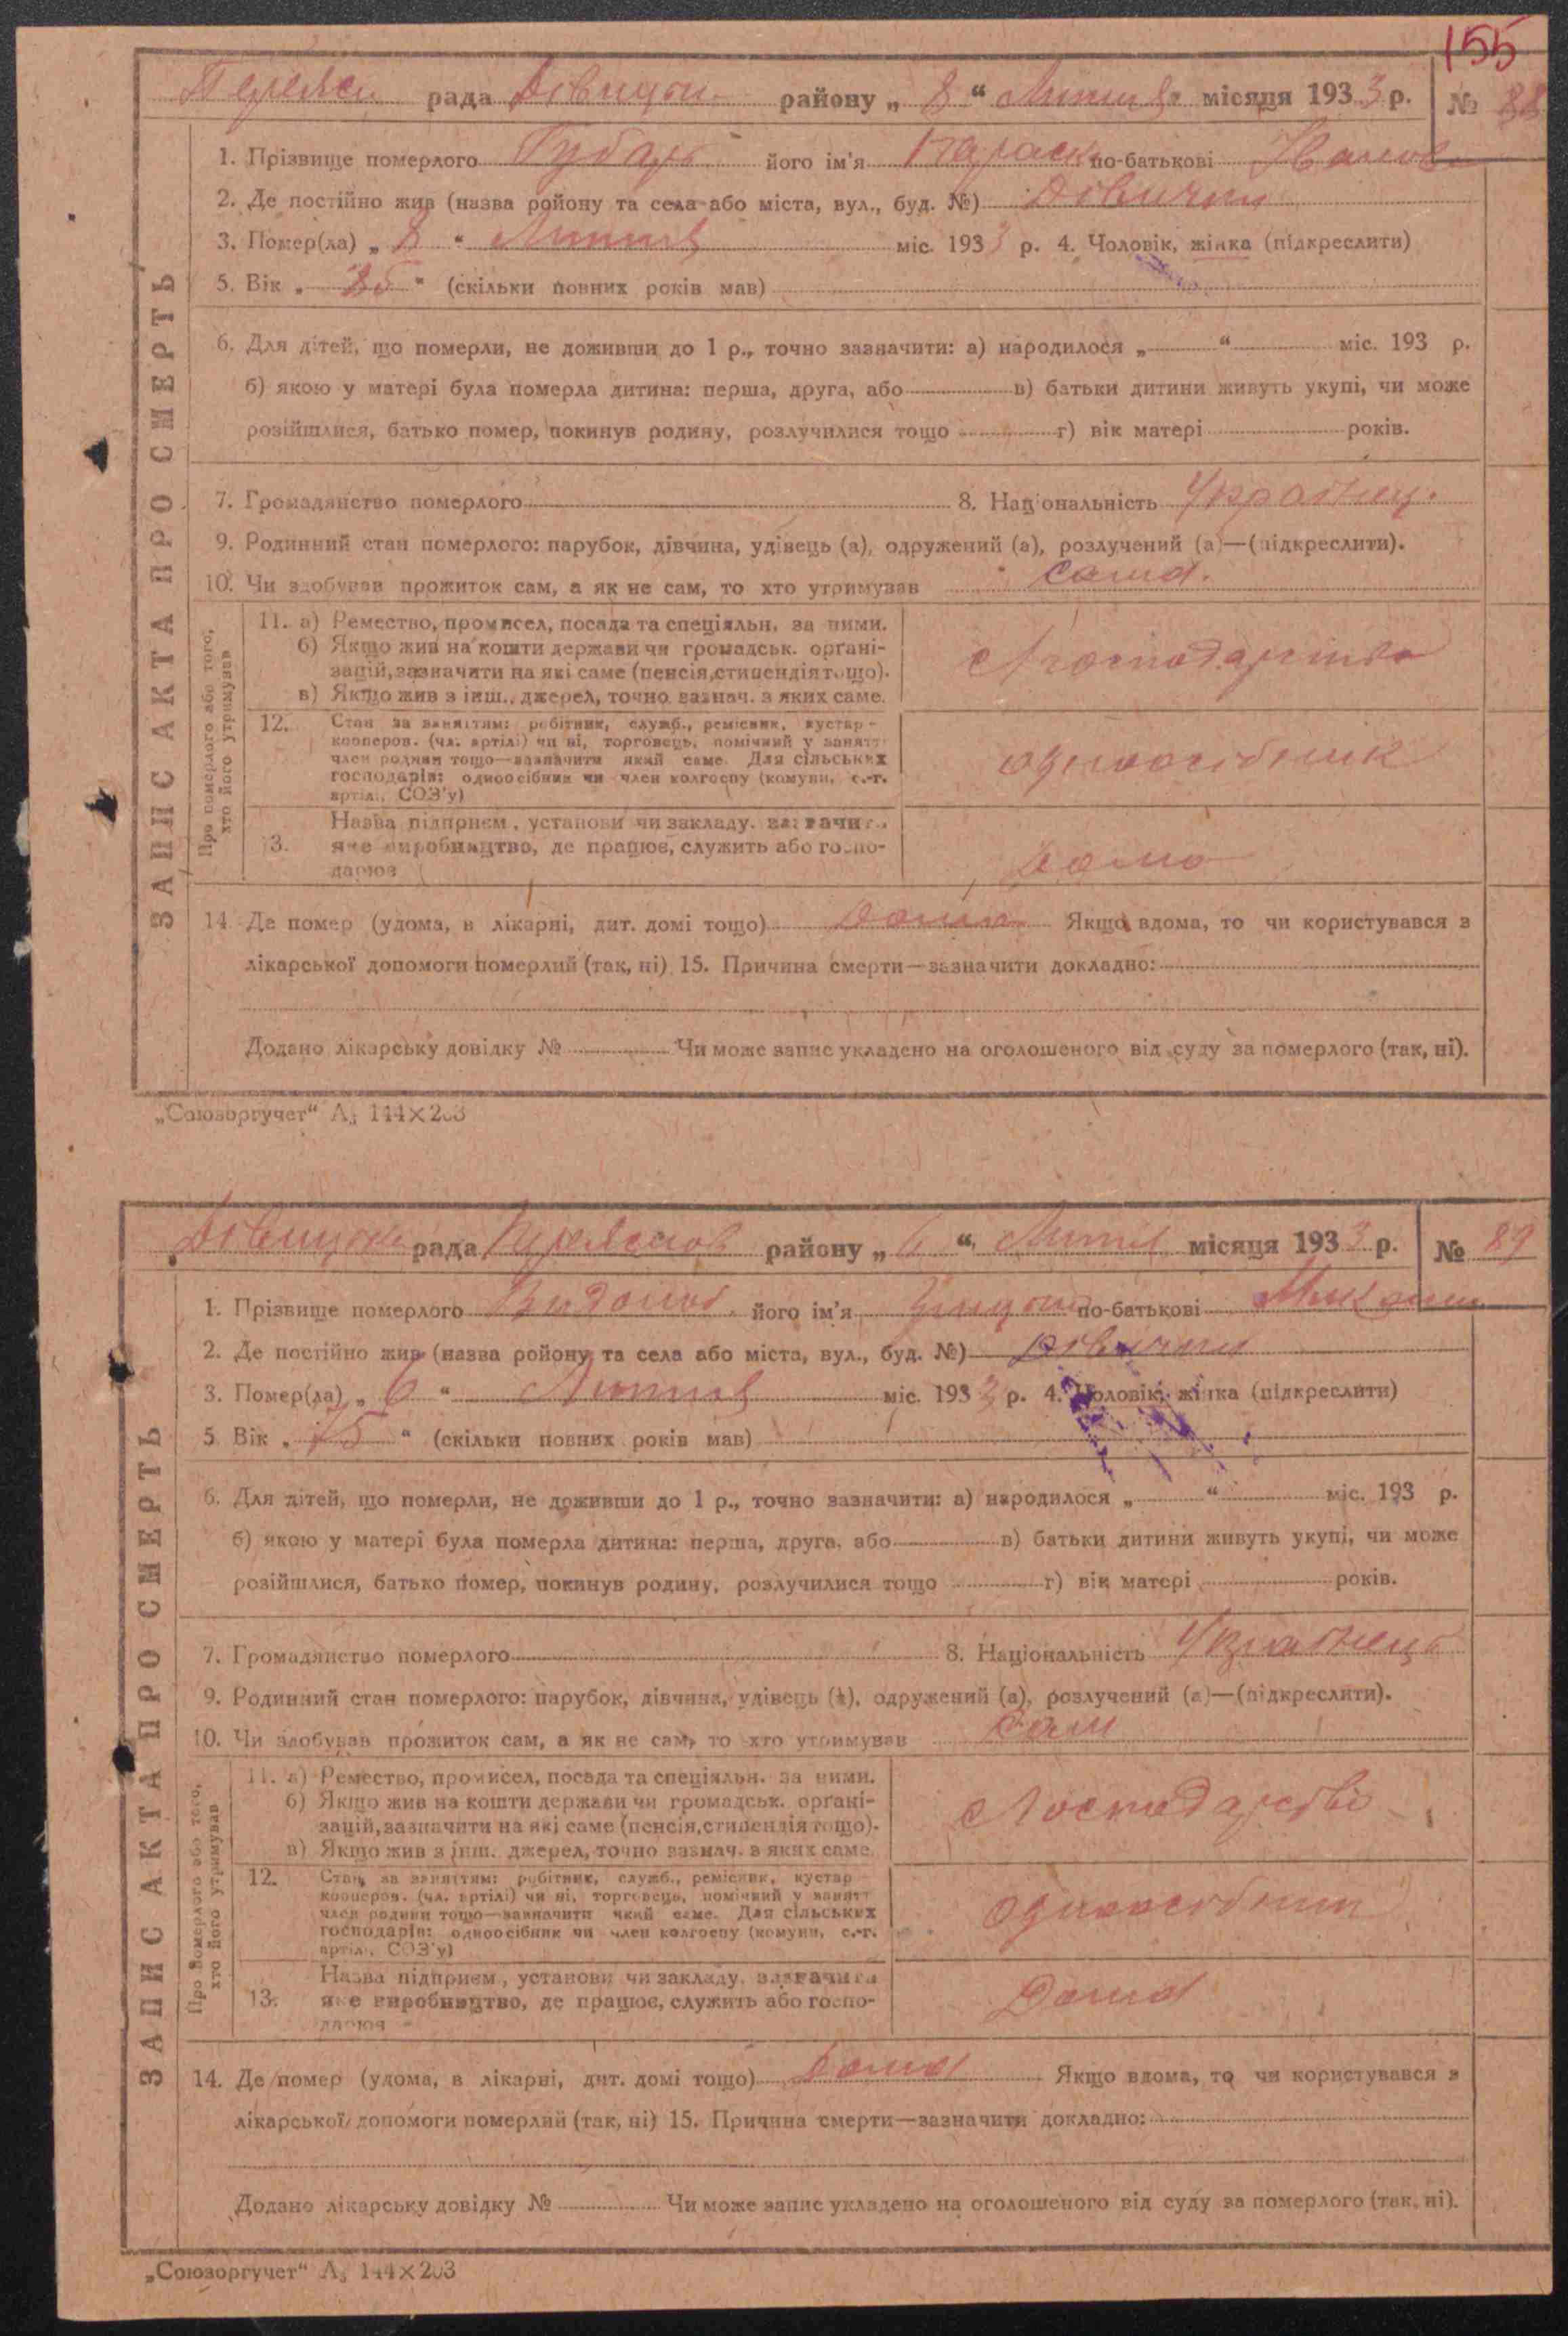 155
рада Дівички району „ 8 “ місяця 1933 р. № 88
1. Прізвище померлого Губарь його ім'я Параска по-батькові
2. Де постійно жив (назва ройону та села або міста, вул., буд. №) Дівички
3. Помер(ла) „ 8 “ міс. 1933 р. 4. Чоловік, жінка (підкреслити)
5. Вік „ “ (скільки повних років мав)
6. Для дітей, що померли, не доживши до 1 р., точно зазначити: а) народилося „ “ міс. 193 р.
б) якою у матері була померла дитина: перша, друга, або в) батьки дитини живуть укупі, чи може
розійшлися, батько помер, покинув родину, розлучилися тощо г) вік матері років.
7. Громадянство померлого 8. Національність Украінец.
9. Родинний стан померлого: парубок, дівчина, удівець (а), одружений (а), розлучений (а)—(підкреслити).
10. Чи здобував прожиток сам, а як не сам, то хто утримував сама.
ЗАПИС АКТА ПРО СМЕРТЬ
Про померлого або того, хто його утримував
11. а) Ремество, промисел, посада та спеціяльн. за ними.
б) Якщо жив на кошти держави чи громадськ. органі-
зацій, зазначити на які саме (пенсія, стипендія тощо).
в) Якщо жив з інш. джерел, точно зазнач. з яких саме.
12. Стан за заняттям: робітник, служб., ремісник, кустар -
кооперов. (чл. артілі) чи ні, торговець, помічний у занятт
член родини тощо—зазначити який саме. Для сільських
господарів: одноосібник чи член колгоспу (комуни, с.-г.
артілі, СОЗ'у)
одноосібник
13. Назва підприєм., установи чи закладу, зазначити
яке виробництво, де працює, служить або госпо-
дарює
дома
14. Де помер (удома, в лікарні, дит. домі тощо) дома Якщо вдома, то чи користувався з
лікарської допомоги померлий (так, ні) 15. Причина смерти—зазначити докладно:
Додано лікарську довідку № Чи може запис укладено на оголошеного від суду за померлого (так, ні).
„Союзоргучет“ А₅ 144×203
рада району „ 6 “ місяця 1933 р. № 89
1. Прізвище померлого його ім'я по-батькові
2. Де постійно жив (назва ройону та села або міста, вул., буд. №) Дівички
3. Помер(ла) „ 6 “ міс. 1933 р. 4. Чоловік, жінка (підкреслити)
5. Вік „ 75 “ (скільки повних років мав)
6. Для дітей, що померли, не доживши до 1 р., точно зазначити: а) народилося „ “ міс. 193 р.
б) якою у матері була померла дитина: перша, друга, або в) батьки дитини живуть укупі, чи може
розійшлися, батько помер, покинув родину, розлучилися тощо г) вік матері років.
7. Громадянство померлого 8. Національність Украінець
9. Родинний стан померлого: парубок, дівчина, удівець (а), одружений (а), розлучений (а)—(підкреслити).
10. Чи здобував прожиток сам, а як не сам, то хто утримував сам
ЗАПИС АКТА ПРО СМЕРТЬ
Про померлого або того, хто його утримував
11. а) Ремество, промисел, посада та спеціяльн. за ними.
б) Якщо жив на кошти держави чи громадськ. органі-
зацій, зазначити на які саме (пенсія, стипендія тощо).
в) Якщо жив з інш. джерел, точно зазнач. з яких саме.
12. Стан за заняттям: робітник, служб., ремісник, кустар
кооперов. (чл. артілі) чи ні, торговець, помічний у занятт
член родини тощо—зазначити який саме. Для сільських
господарів: одноосібник чи член колгоспу (комуни, с.-г.
артілі, СОЗ'у)
одноосібник
13. Назва підприєм., установи чи закладу, зазначити
яке виробництво, де працює, служить або госпо-
дарює
Дома
14. Де помер (удома, в лікарні, дит. домі тощо) дома Якщо вдома, то чи користувався з
лікарської допомоги померлий (так, ні) 15. Причина смерти—зазначити докладно:
Додано лікарську довідку № Чи може запис укладено на оголошеного від суду за померлого (так, ні).
„Союзоргучет“ А₅ 144×203